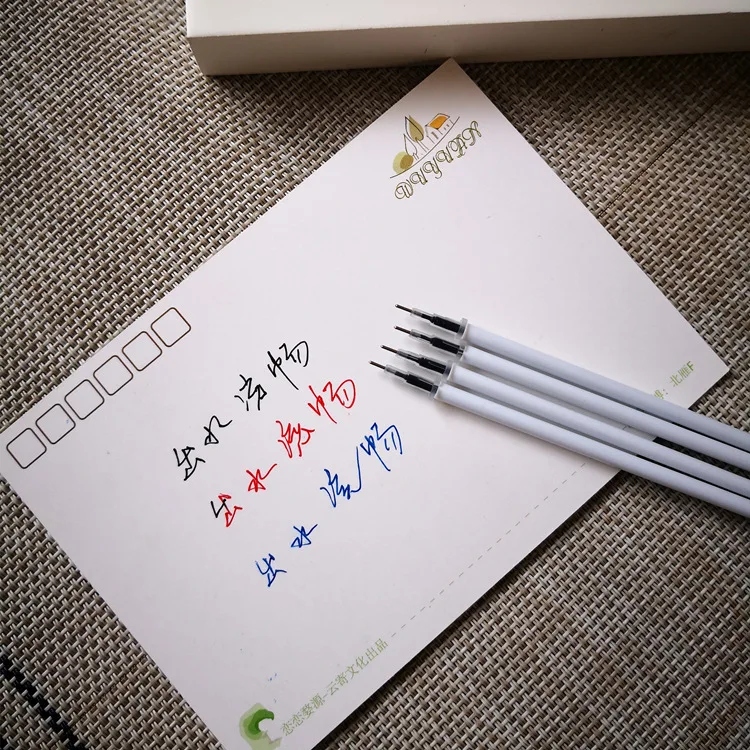 出水流畅
出水流畅
出水流畅
恋恋婺源-云寄文化出品
北雁F